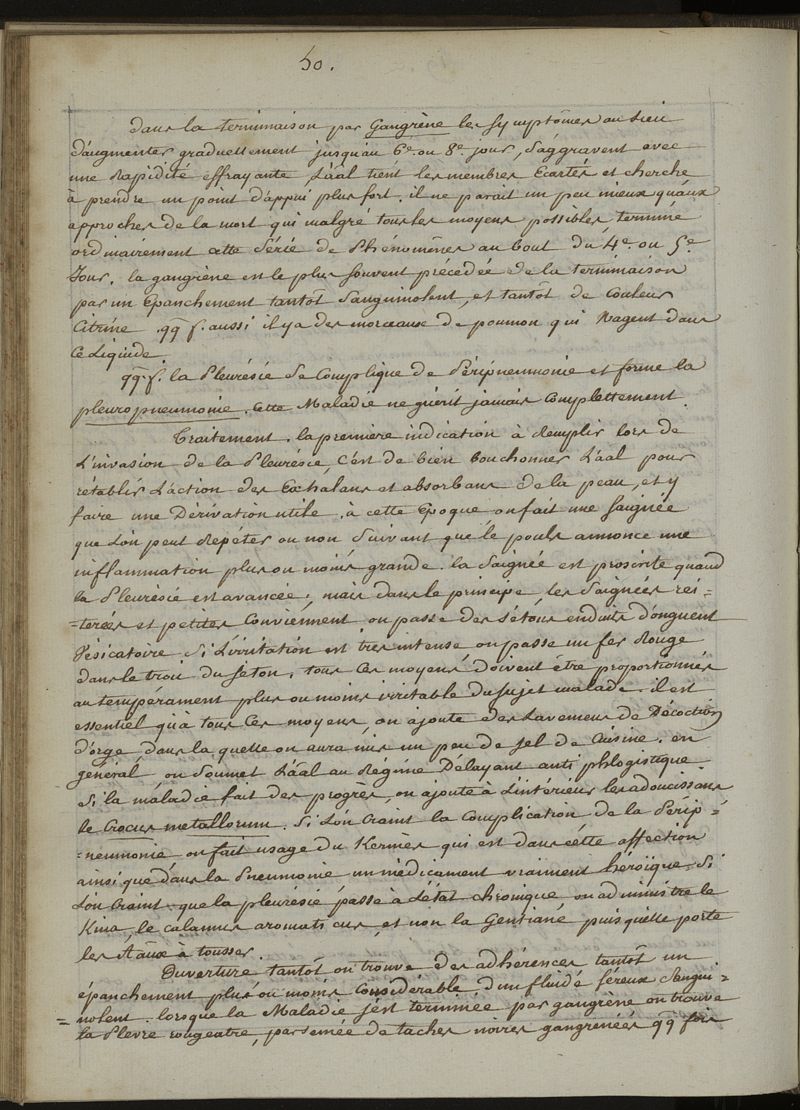 50.
dans la terminaison par Gangrène les symptômes au lieu
d'augmenter graduellement jusqu'au 6e. ou 8e. jour, s'aggravent avec
une Rapidité effrayante, L'aāl tient les membres Ecartés et cherche
à prendre un point d'appui plus fort. il ne parait un peu mieux qu'aux
approches de la mort qui malgré tous les moyens possibles, terminé
ordinairement cette Série de Phénomènes au bout du 4e. ou 5e.
Jour. la gangrène est le plus souvent précédée de la terminaison
par un Epanchement tantôt Sanguinolent, et tantôt de Couleur
Citrine. qq f. aussi il y a des morceaux de poumon qui Nagent dans
Ce Liquide.
qq. f. la Pleurésie Se Complique de Péripneumonie et forme la
pleuropneumonie. Cette Maladie ne guérit jamais Complettement.
Traitement. la première indication à Remplir lors de
L'invasion de la Pleurésie, C'est de bien bouchonner L'aāl pour
rétablir L'action des Exhalans et absorbans de la peau, et y
faire une Dérivation utile. à cette Epoque on fait une Saignée
que L'on peut Répéter ou non Suivant que le pouls annonce une
inflammation plus ou moins grande. la Saignée est proscrite quand
la Pleurésie est avancée; mais dans le principe les Saignées réi=
=terées et petites Conviennent on passe des sétons enduits d'onguent
Vésicatoire Si L'irritation est très intense on passe un fer Rouge
dans le trou du séton. tous Ces moyens doivent être proportionnés
au tempérament plus ou moins irritable du sujet malade. il est
essentiel qu'à tous Ces moyens, on ajoute des Lavemens de Décoction
d'orge dans la quelle on aura mis un peu de Sel de Cuisine. en
général on Soumet L'aāl au Régime Délayant anti phlogistique.
Si la maladie fait des progrès, on ajoute à L'intérieur les adoucissans
le Crocus metallorum. Si L'on Craint la Complication de la Perip=
=neumonie on fait usage du Kermès qui est dans cette affection
ainsi que dans la Pneumonie un médicament vraiment héroïque. Si
L'on Craint que la pleurésie passe à L'état chronique on administre le
Kina, le calamus aromaticus, et non la Gentiane puisqu'elle porte
les Aāux à tousser.
Ouverture tantôt on trouve des adhérences tantôt un
épanchement plus ou moins Considérable d'un fluide séreux Sangui=
=nolent. lorsque la Maladie s'est terminée par gangrène on trouve
la Plevre rougeatre, parsemée de taches noires gangrenées qq fois